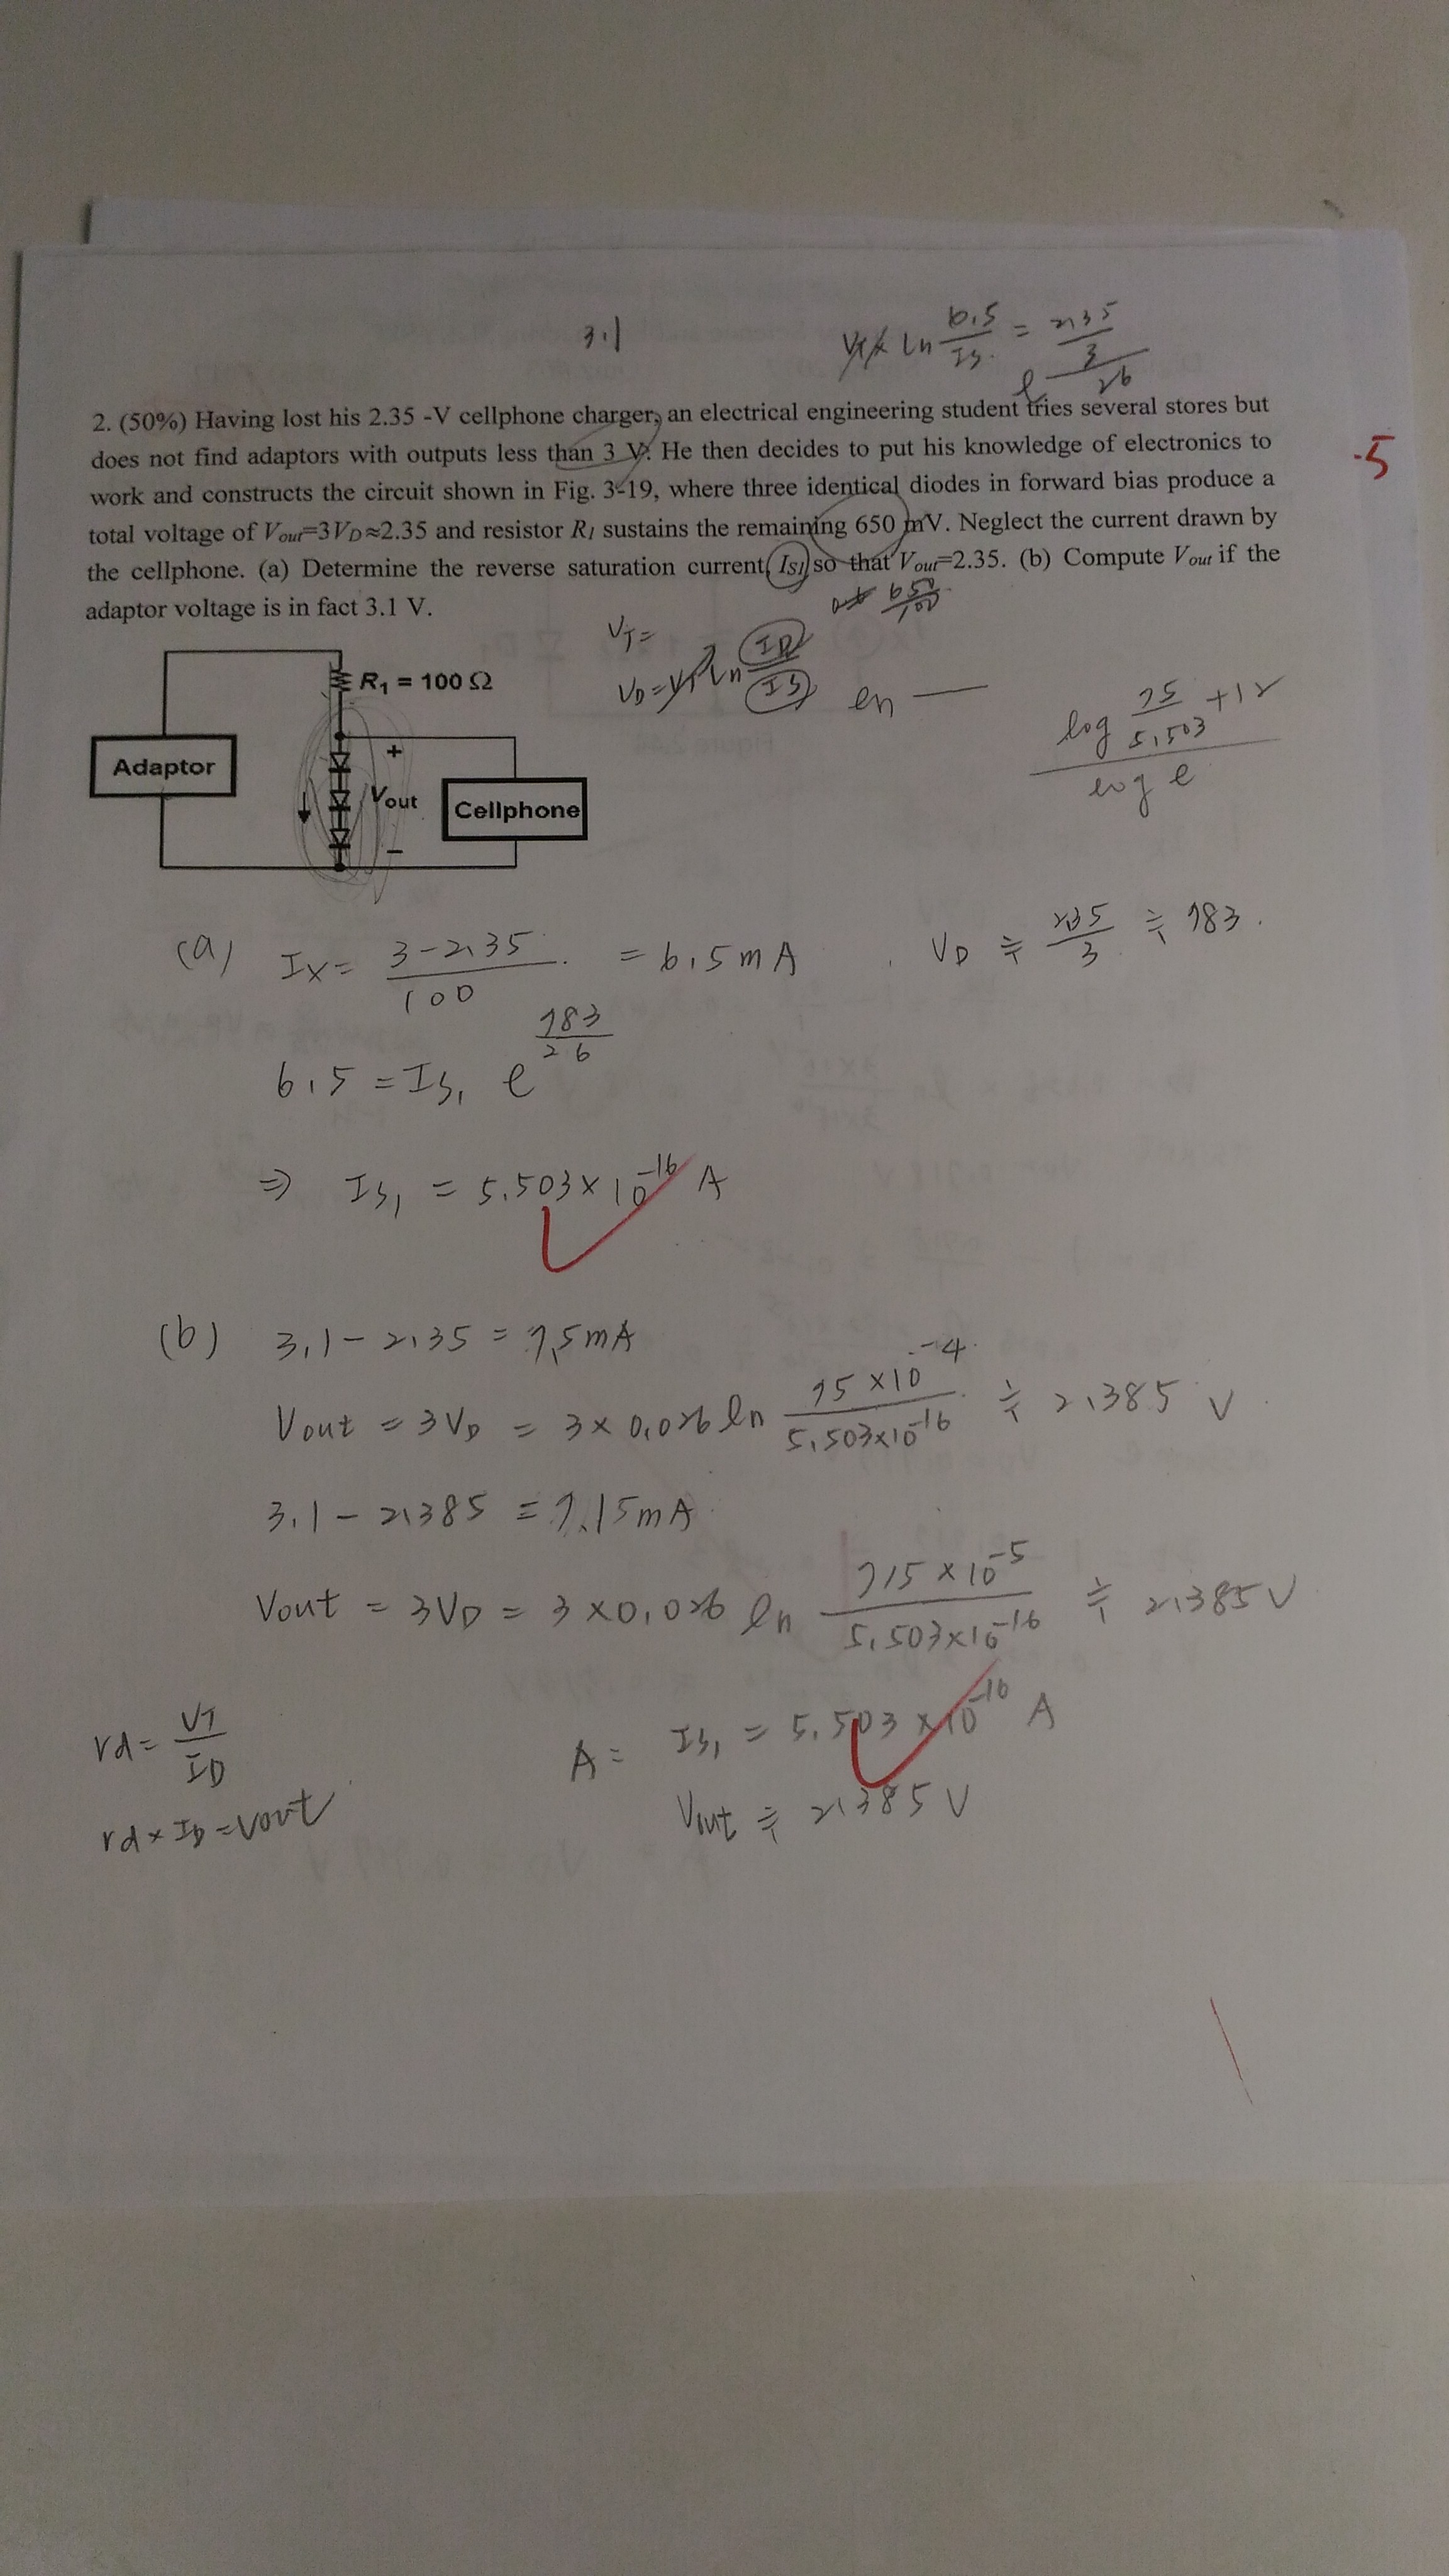 3.1
ln 6.5/Is = 2.35/3/26
2. (50%) Having lost his 2.35 -V cellphone charger, an electrical engineering student tries several stores but
does not find adaptors with outputs less than 3 V. He then decides to put his knowledge of electronics to
-5
work and constructs the circuit shown in Fig. 3-19, where three identical diodes in forward bias produce a
total voltage of Vout=3VD≈2.35 and resistor R1 sustains the remaining 650 mV. Neglect the current drawn by
the cellphone. (a) Determine the reverse saturation current IS1 so that Vout=2.35. (b) Compute Vout if the
adaptor voltage is in fact 3.1 V.
650/100
VT=
VD=VT ln ID/IS
ln —
log 75/5.503 +12
log e
R1 = 100 Ω
+
Adaptor
Vout
Cellphone
−
(a) IX = 3-2.35/100 = 6.5mA
VD ≒ 235/3 ≒ 783.
6.5 = Is1 e^783/26
⇒ Is1 = 5.503×10^-16 A
(b) 3.1-2.35 = 7.5mA
Vout = 3VD = 3×0.026 ln 75×10^-4/5.503×10^-16 ≒ 2.385 V
3.1-2.385 = 7.15mA
Vout = 3VD = 3×0.026 ln 715×10^-5/5.503×10^-16 ≒ 2.385V
rd = VT/ID
A= Is1 = 5.503×10^-16 A
rd×ID=Vout
Vout ≒ 2.385 V